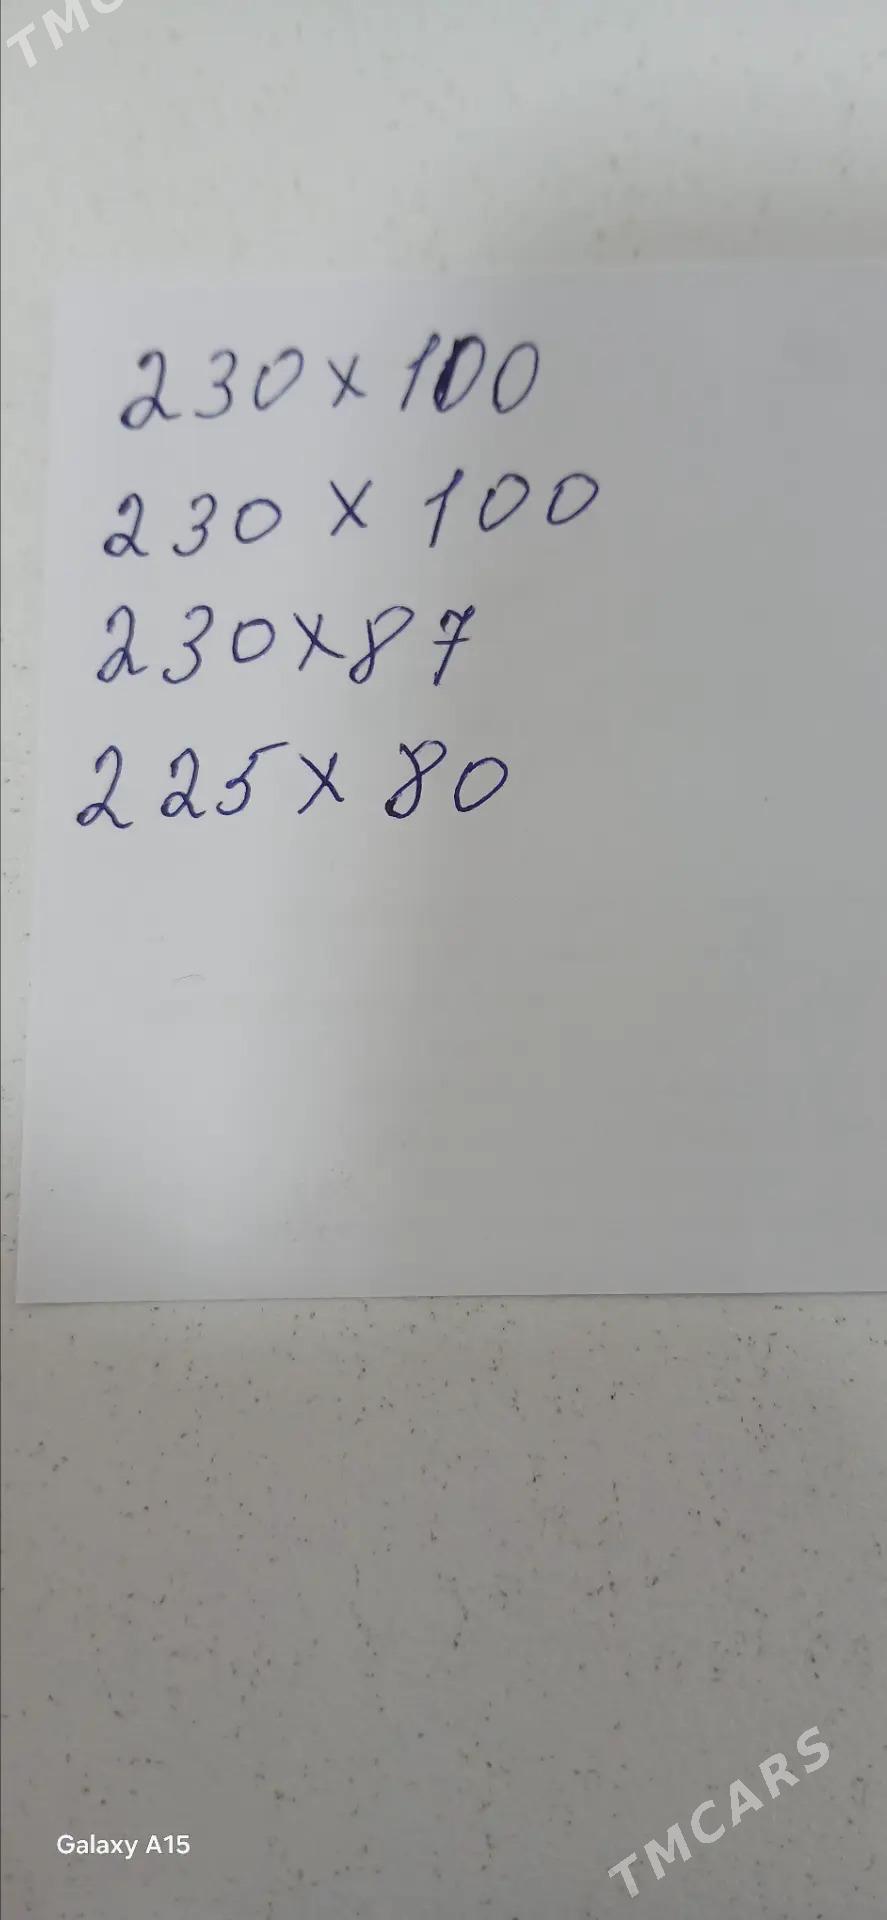 TMC
230 x 100
230 x 100
230 x 87
225 x 80
Galaxy A15
TMCARS